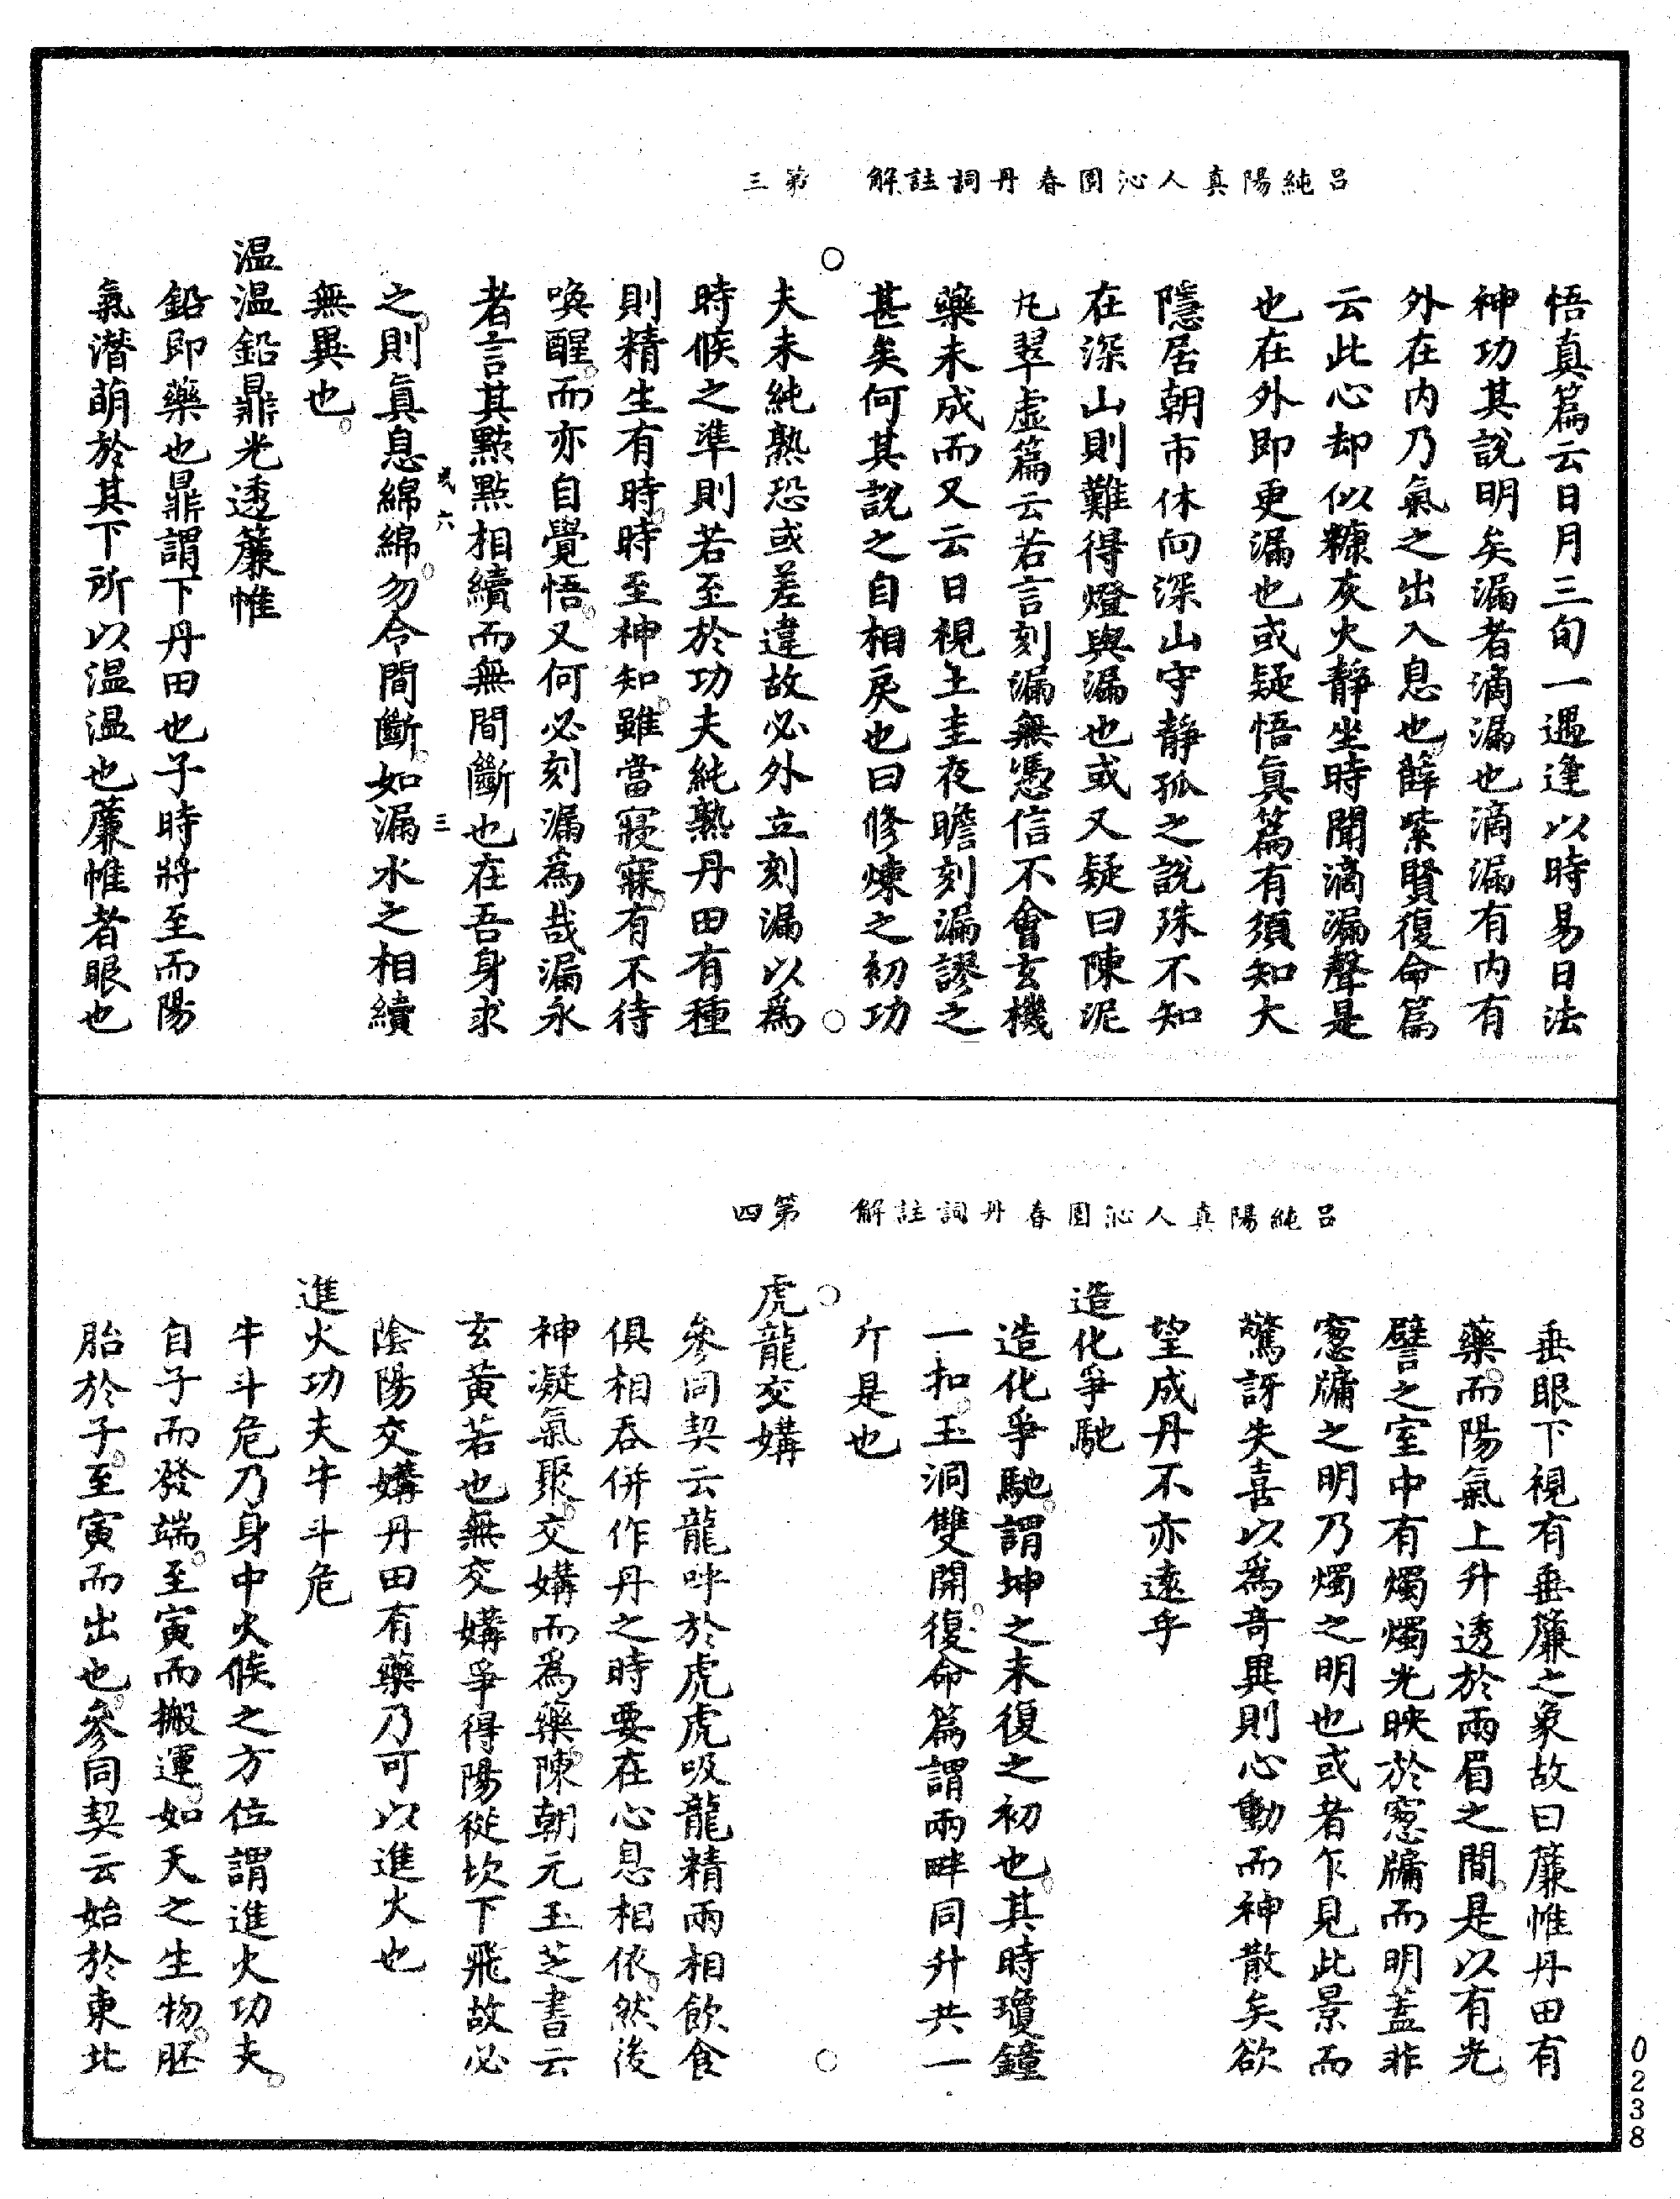 呂純陽真人沁園春丹詞註解　第三
悟真篇云日月三旬一遇逢以時易日法
神功其說明矣漏者滴漏也滴漏有内有
外在内乃氣之出入息也薛紫賢復命篇
云此心却似糠灰火靜坐時聞滴漏聲是
也在外即更漏也或疑悟真篇有須知大
隱居朝市休向深山守靜孤之說殊不知
在深山則難得燈與漏也或又疑曰陳泥
丸翠虛篇云若言刻漏無憑信不會玄機
藥未成而又云日視土圭夜瞻刻漏謬之
甚矣何其說之自相戾也曰修煉之初功
夫未純熟恐或差違故必外立刻漏以爲
時候之準則若至於功夫純熟丹田有種
則精生有時時至神知雖當寢寐有不待
喚醒而亦自覺悟又何必刻漏爲哉漏永
者言其點點相續而無間斷也在吾身求
六　三
之則真息綿綿勿令間斷如漏水之相續
無異也
温温鉛鼎光透簾帷
鉛即藥也鼎謂下丹田也子時將至而陽
氣潛萌於其下所以温温也簾帷者眼也
呂純陽真人沁園春丹詞註解　第四
垂眼下視有垂簾之象故曰簾帷丹田有
藥而陽氣上升透於兩眉之間是以有光
譬之室中有燭燭光映於窓牖而明蓋非
窓牖之明乃燭之明也或者乍見此景而
驚訝失喜以爲奇異則心動而神散矣欲
望成丹不亦遠乎
造化爭馳
造化爭馳謂坤之末復之初也其時瓊鐘
一扣玉洞雙開復命篇謂兩畔同升共一
斤是也
虎龍交媾
參同契云龍呼於虎虎吸龍精兩相飲食
俱相吞併作丹之時要在心息相依然後
神凝氣聚交媾而爲藥陳朝元玉芝書云
玄黃若也無交媾爭得陽從坎下飛故必
陰陽交媾丹田有藥乃可以進火也
進火功夫牛斗危
牛斗危乃身中火候之方位謂進火功夫
自子而發端至寅而搬運如天之生物胚
胎於子至寅而出也參同契云始於東北
0238